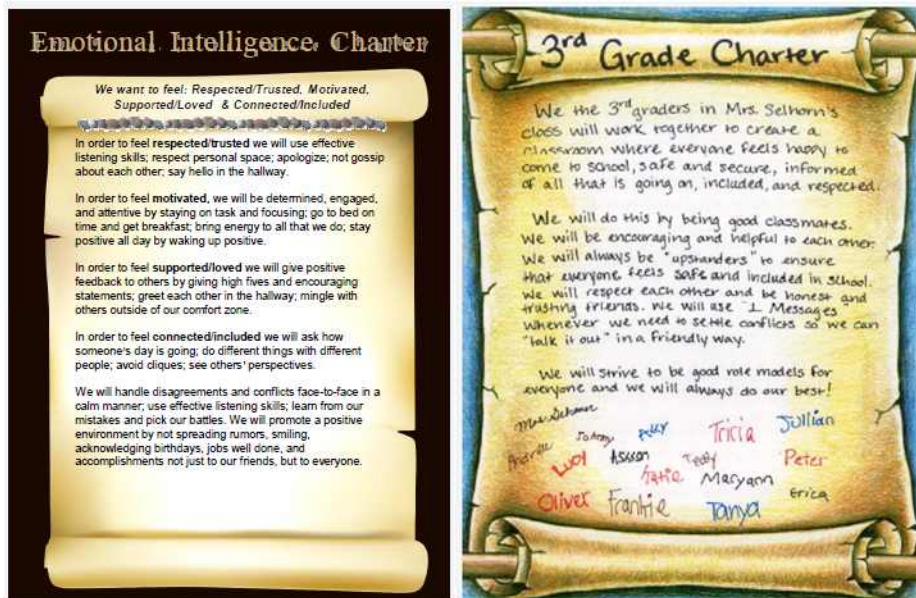 Emotional Intelligence Charter
We want to feel: Respected/Trusted, Motivated,
Supported/Loved & Connected/Included
In order to feel respected/trusted we will use effective
listening skills; respect personal space; apologize; not gossip
about each other; say hello in the hallway.
In order to feel motivated, we will be determined, engaged,
and attentive by staying on task and focusing; go to bed on
time and get breakfast; bring energy to all that we do; stay
positive all day by waking up positive.
In order to feel supported/loved we will give positive
feedback to others by giving high fives and encouraging
statements; greet each other in the hallway; mingle with
others outside of our comfort zone.
In order to feel connected/included we will ask how
someone's day is going; do different things with different
people; avoid cliques; see others' perspectives.
We will handle disagreements and conflicts face-to-face in a
calm manner; use effective listening skills; learn from our
mistakes and pick our battles. We will promote a positive
environment by not spreading rumors, smiling,
acknowledging birthdays, jobs well done, and
accomplishments not just to our friends, but to everyone.
3rd Grade Charter
We the 3rd graders in Mrs. Selhorn's
class will work together to create a
classroom where everyone feels happy to
come to school, safe and secure, informed
of all that is going on, included, and respected.
We will do this by being good classmates.
We will be encouraging and helpful to each other.
We will always be "upstanders" to ensure
that everyone feels safe and included in school.
We will respect each other and be honest and
trusting friends. We will use "I Messages
whenever we need to settle conflicts so we can
"talk it out" in a friendly way.
We will strive to be good role models for
everyone and we will always do our best!
Tricia Jullian
Lucy Peter
Katie Maryann
Oliver Frankie Tanya Erica